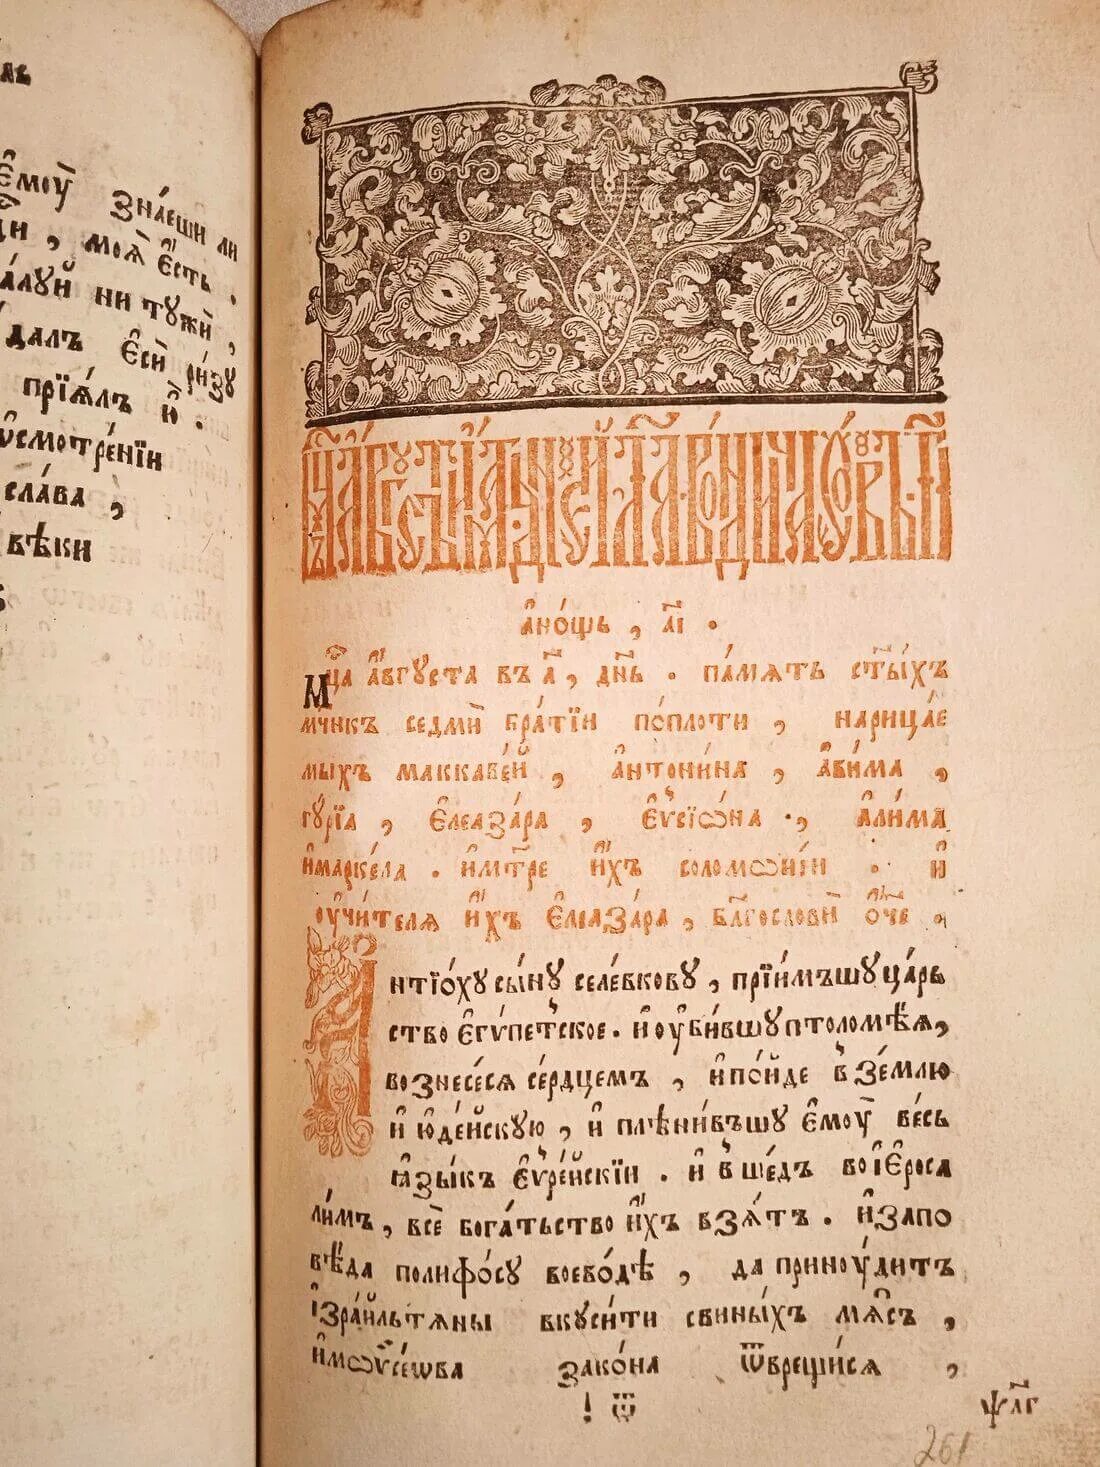 є҆моу̀ зна́еши ли
моѧ̀ є҆́сть .
ни тѹжѝ ,
далъ є҆сѝ ри́зѹ
прїѧ́лъ ю҆̀ .
ᲂу҆смотре́нїи
сла́ва ,
вѣки
а҆но́щь , а҃і .
мц҃а а҆́вгѹста въ а҃ , дн҃ь . па́мѧть ст҃ы́хъ
мч҃нкъ седмѝ бра́тїи по́плоти , нарица́е
мыхъ маккаве́й , а҆нтони́на , а҆ви́ма ,
гѹ́рїа , є҆леаза́ра , є҆ѵсїѡ́на , а҆ли́ма
и҆марке́ла . и҆мт҃ре и҆́хъ соломѡні́и . и҆
ᲂу҆чи́телѧ и҆́хъ є҆лїаза́ра , бл҃гословѝ ѻ҆́ч҃е .
Антїо́хѹ сы́нѹ селе́вковѹ , прїи́мъшѹ ца́рь
ство є҆гѵ́петское . и҆ ᲂу҆би́вшѹ птоломе́ѧ ,
вознесе́сѧ се́рдцемъ , и҆по́йде в зе́млю
и҆ ю҆де́йскѹю , и҆ плѣни́въшѹ є҆моу̀ ве́сь
ꙗ҆зы́къ є҆вре́йскїи . и҆ вше́дъ во і҆є҆роса
ли́мъ , всѐ бога́тьство и҆́хъ взѧ́тъ . и҆запо
вѣ́да полифо́сѹ воево́дѣ , да приноу́дитъ
і҆зра́ильтѧны вкѹси́ти свины́хъ мѧ́съ ,
и҆мѡѷсе́ѡва зако́на ѿврещи́сѧ ,
! ѿ
ѱл҃г
261